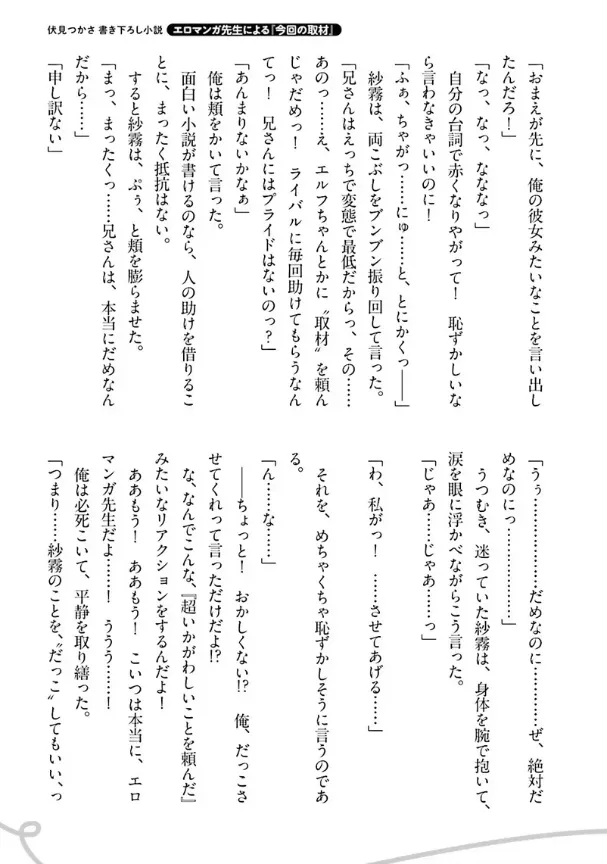 伏見つかさ 書き下ろし小説 エロマンガ先生による『今回の取材』
「おまえが先に、俺の彼女みたいなことを言い出し
たんだろ！」
「なっ、なっ、なななっ」
自分の台詞で赤くなりやがって！　恥ずかしいな
ら言わなきゃいいのに！
「ふぁ、ちゃがっ……にゅ……と、とにかくっ――」
紗霧は、両こぶしをブンブン振り回して言った。
「兄さんはえっちで変態で最低だからっ、その……
あのっ……え、エルフちゃんとかに〝取材〟を頼ん
じゃだめっ！　ライバルに毎回助けてもらうなん
てっ！　兄さんにはプライドはないのっ？」
「あんまりないかなぁ」
俺は頬をかいて言った。
面白い小説が書けるのなら、人の助けを借りるこ
とに、まったく抵抗はない。
すると紗霧は、ぷぅ、と頬を膨らませた。
「まっ、まったくっ……兄さんは、本当にだめなん
だから……」
「申し訳ない」
「うぅ…………………だめなのに…………ぜ、絶対だ
めなのにっ…………」
うつむき、迷っていた紗霧は、身体を腕で抱いて、
涙を眼に浮かべながらこう言った。
「じゃあ……じゃあ……っ」
「わ、私がっ！　……させてあげる……」
それを、めちゃくちゃ恥ずかしそうに言うのであ
る。
「ん……な……」
――ちょっと！　おかしくない!?　俺、だっこさ
せてくれって言っただけだよ!?
な、なんでこんな、『超いかがわしいことを頼んだ』
みたいなリアクションをするんだよ！
ああもう！　ああもう！　こいつは本当に、エロ
マンガ先生だよ……！　ううう……！
俺は必死こいて、平静を取り繕った。
「つまり……紗霧のことを、〝だっこ〟してもいい、っ